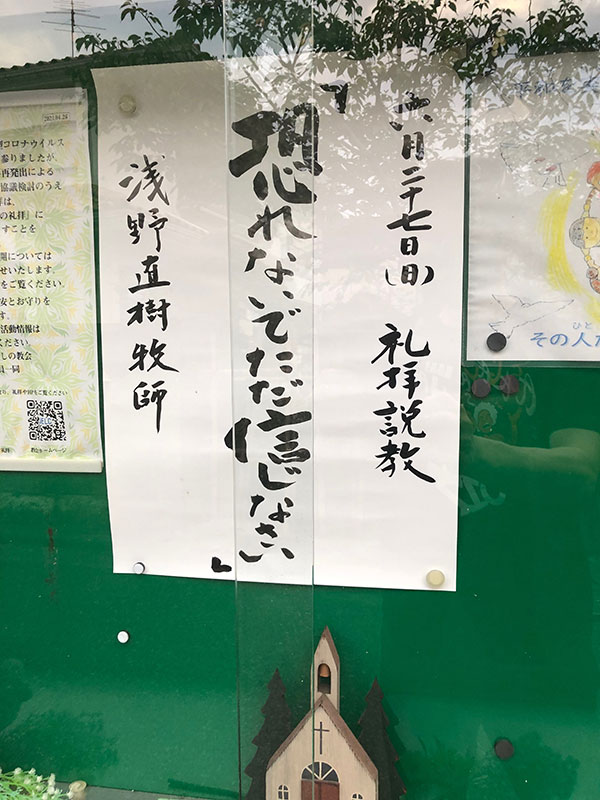 六月二十七日(日) 礼拝説教
「恐れないでただ信じなさい」
浅野直樹牧師
2021.04.28
コロナウイルス
参りましたが、
再発出による
協議検討のうえ
の礼拝」に
すことを
開については
せいたします。
をご覧ください。
安とお守りを
す。
活動情報は
しの教会
員一同
ひと
その人